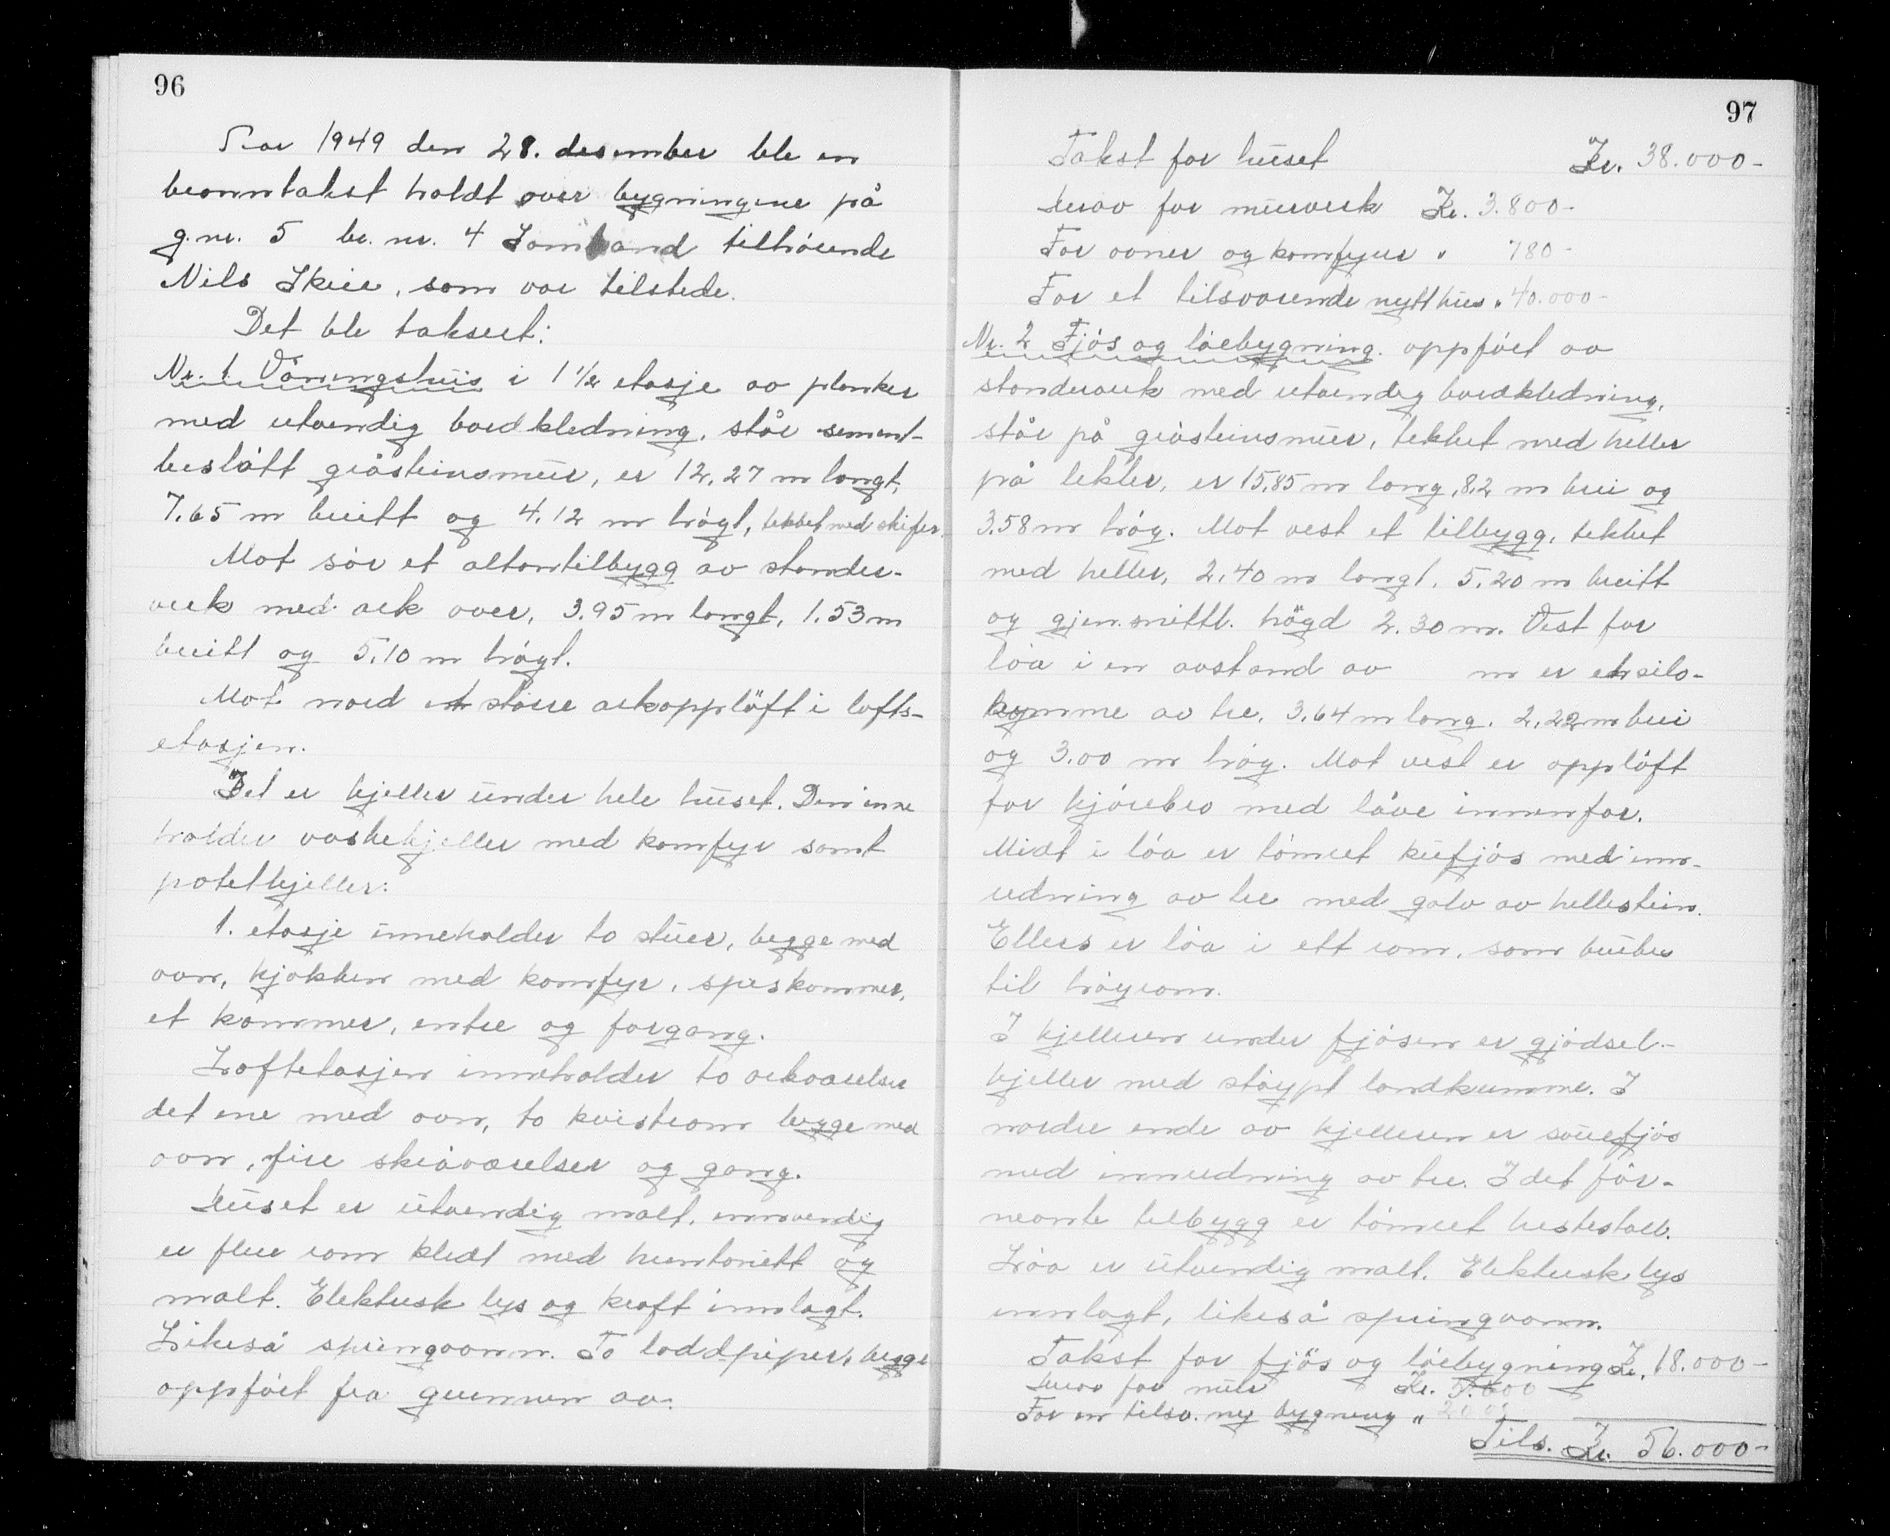 96
År 1949 den 28. desember ble en
branntakst holdt over bygningene på
g.nr. 5 br. nr. 4 Tomtand tilhørende
Nils Skeie, som var tilstede.
Det ble taksert:
Nr. 1 Våningshus i 1 1/2 etasje av planker
med utvendig bordkledning, står sement-
beslått gråsteinsmur, er 12,27 m langt,
7,65 m breitt og 4,12 m høgt, tekket med skifer.
Mot sør et altantilbygg av stender-
verk med ark over, 3,95 m langt, 1,53 m
breitt og 5,10 m høgt.
Mot nord et større arkoppløft i lofts-
etasjen.
Det er kjeller under hele huset. Den inne
holder vaskekjeller med komfyr samt
potetkjeller.
1. etasje inneholder to stuer, begge med
ovn, kjøkken med komfyr, speskammer,
et kammer, entre og forgang.
Loftetasjen inneholder to arkværelser
det ene med ovn, to kvistrom begge med
ovn, fire skråværelser og gang.
Huset er utvendig malt, innvendig
er flere rom kledt med huntonitt og
malt. Elektrisk lys og kraft innlagt.
Likeså springvann. To loddpiper, begge
oppført fra grunnen av.
97
Takst for huset Kr. 38.000-
Herav for murverk Kr. 3.800-
For ovner og komfyrer " 780-
For et tilsvarende nytt hus " 40.000-
Nr. 2 Fjøs og løebygning. oppført av
stenderverk med utvendig bordkledning,
står på gråsteinsmur, tekket med heller
på lekter, er 15,85 m lang, 8,2 m brei og
3.58 m høg. Mot vest et tilbygg, tekket
med heller, 2,40 m langt, 5,20 m breitt
og gjen.snittl. högd 2.30 m. Vest for
løa i en avstand av m er en silo-
kumme av tre, 3,64 m lang. 2,22 m brei
og 3.00 m høg. Mot vest er oppløft
for kjørebro med låve innenfor.
Midt i løa er tømret kufjøs med inn-
redning av tre med golv av hellestein.
Ellers er løa i ett rom, som brukes
til høyrom.
I kjelleren under fjøsen er gjødsel-
kjeller med støypt landkumme. I
nordre ende av kjelleren er sauefjøs
med innredning av tre. I det før-
nevnte tilbygg er tømret hestestall.
Løa er utvendig malt. Elektrisk lys
innlagt, likeså springvann.
Takst for fjøs og løebygning Kr. 18.000-
Herav for mur Kr. 5.600
For en tilsv. ny bygning "
Tils. Kr. 56.000-